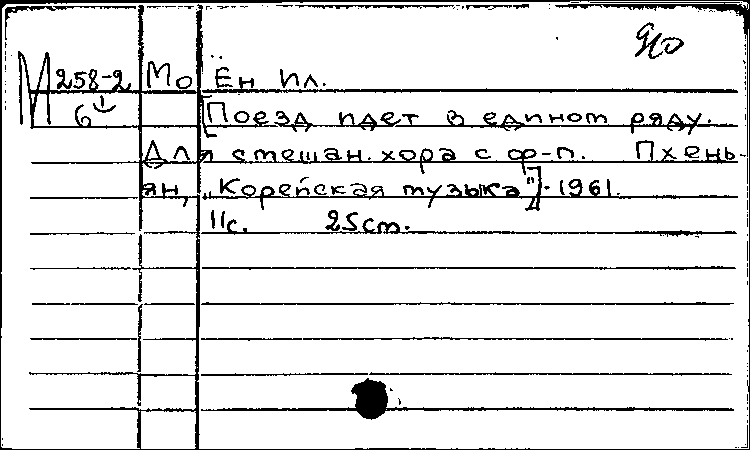 М 258-2 Мо Ён Ил.
6 [Поезд идет в едином ряду.
Для смешан. хора с ф-п. Пхень-
ян, „Корейская музыка"]. 1961.
11с. 25см.